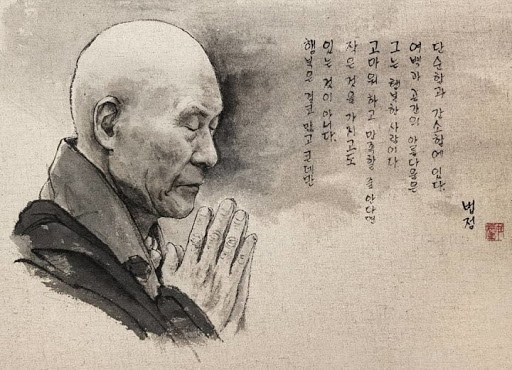 행복은 결코 많고 큰데만
있는 것이 아니다.
작은 것을 가지고도
고마워 하고 만족할 줄 안다면
그는 행복한 사람이다
여백과 공간의 아름다움은
단순함과 간소함에 있다.
법정